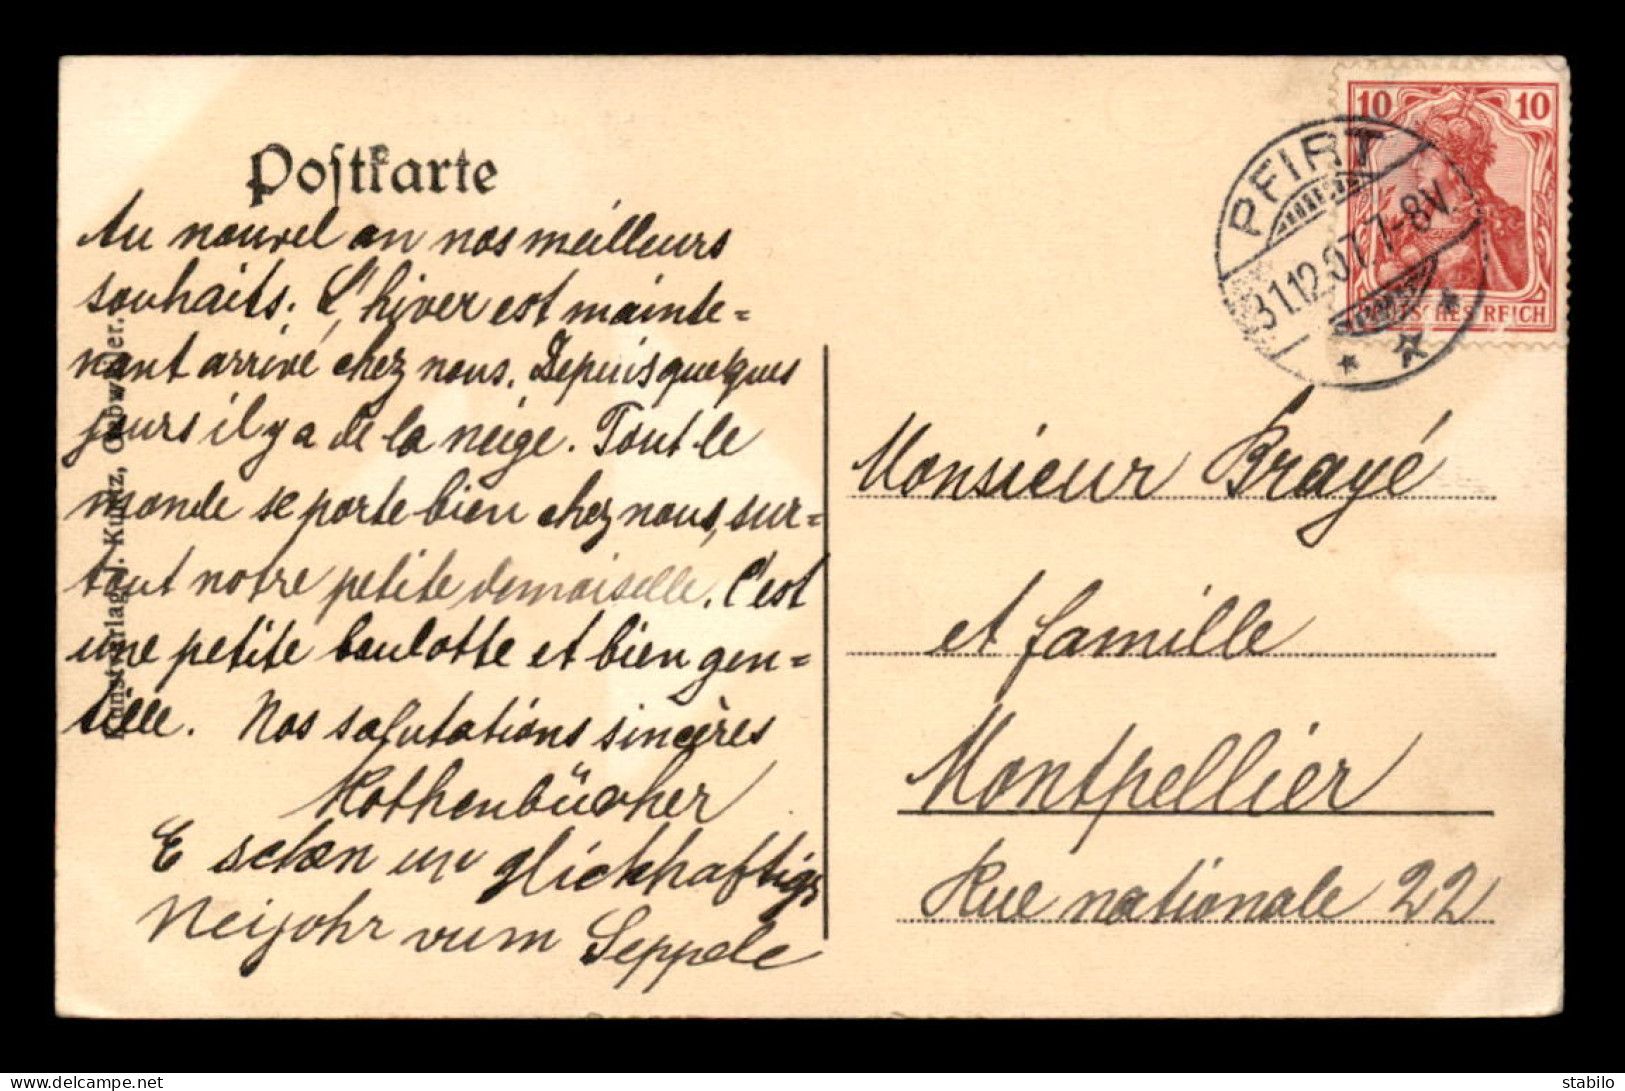 Postkarte
Au nouvel an nos meilleurs
souhaits. L'hiver est mainte=
nant arrivé chez nous. Depuis quelques
jours il y a de la neige. Tout le
monde se porte bien chez nous, sur=
tout notre petite demoiselle. C'est
une petite boulotte et bien gen=
tille. Nos salutations sincères
Rothenbücher
E schœn un glickhaftigs
Neijohr vum Seppele
Kunstverlag J. Kuntz, Gebweiler.
10 10
DEUTSCHES REICH
PFIRT
31.12.07.7-8V.
Monsieur Brayé
et famille
Montpellier
Rue nationale 22
stabilo